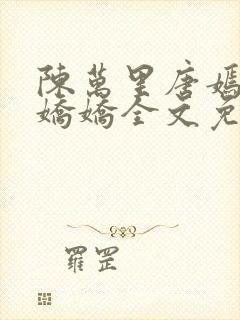 陳萬里唐嫣
嬌嬌全文免
羅罡